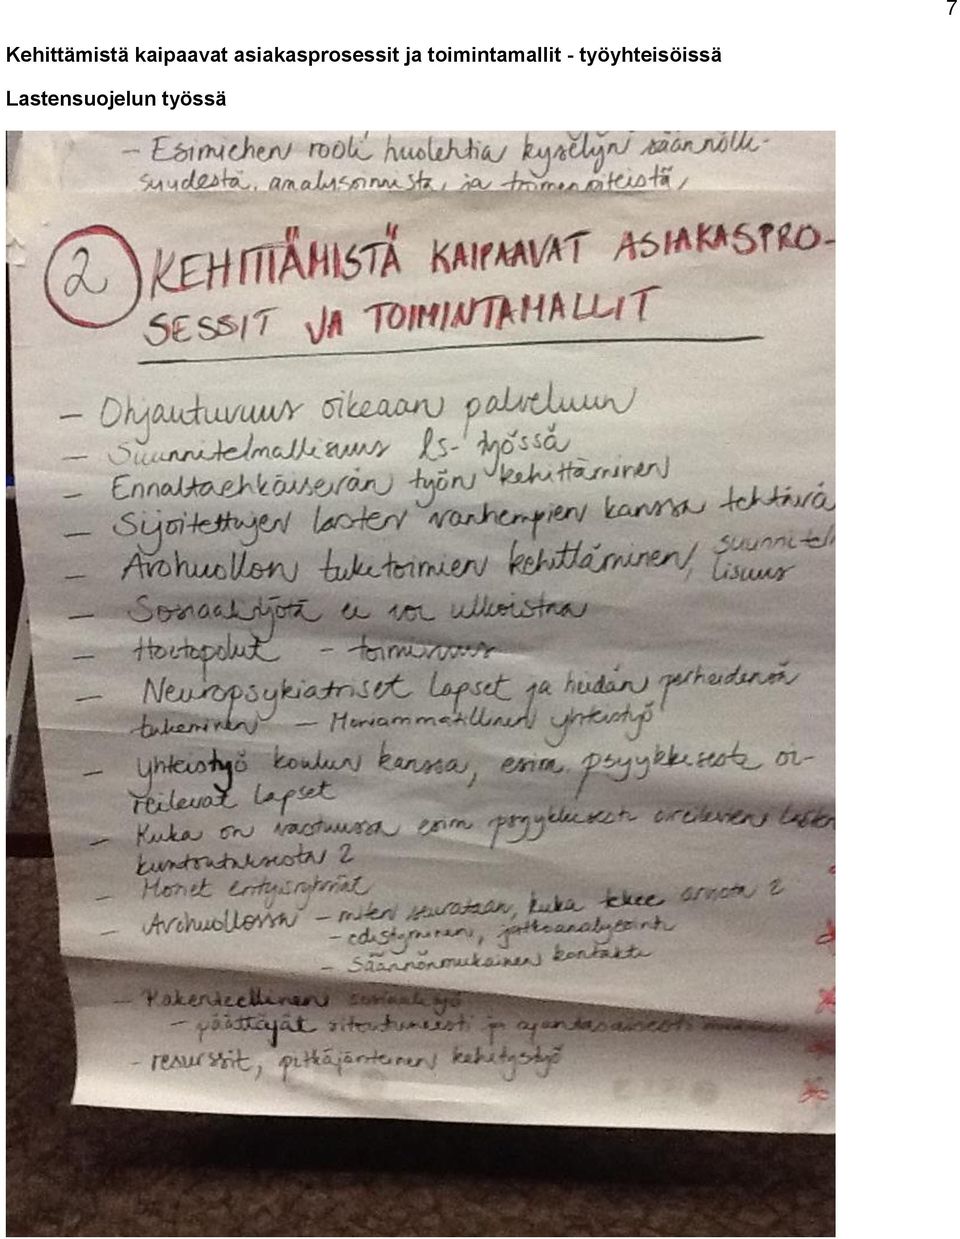 7
Kehittämistä kaipaavat asiakasprosessit ja toimintamallit - työyhteisöissä
Lastensuojelun työssä
- Esimiehen rooli huolehtia kyselyn säännölli-
suudesta, analysoinnista, ja toimenpiteistä
2 KEHITTÄMISTÄ KAIPAAVAT ASIAKASPRO-
SESSIT JA TOIMINTAMALLIT
- Ohjautuvuus oikeaan palveluun
- Suunnitelmallisuus ls-työssä
- Ennaltaehkäisevän työn kehittäminen
- Sijoitettujen lasten vanhempien kanssa tehtävä
- Avohuollon tukitoimien kehittäminen, suunnitel
lisuus
- Sosiaalityötä ei voi ulkoistaa
- Hoitopolut - toimivuus
- Neuropsykiatriset lapset ja heidän perheidensä
tukeminen - Moniammatillinen yhteistyö
- yhteistyö koulun kanssa, esim. psyykkisesti oi-
reilevat lapset
- Kuka on vastuussa esim psyykkisesti oireilevien lasten
kuntoutuksesta ?
- Monet erityisryhmät
- Avohuollossa - miten seurataan, kuka tekee arviota ?
- edistyminen, jatkoanalysointi
- Säännönmukainen kontakti
- Rakenteellinen sosiaalityö
- päättäjät sitoutuneesti ja ajantasaisesti
- resurssit, pitkäjänteinen kehitystyö